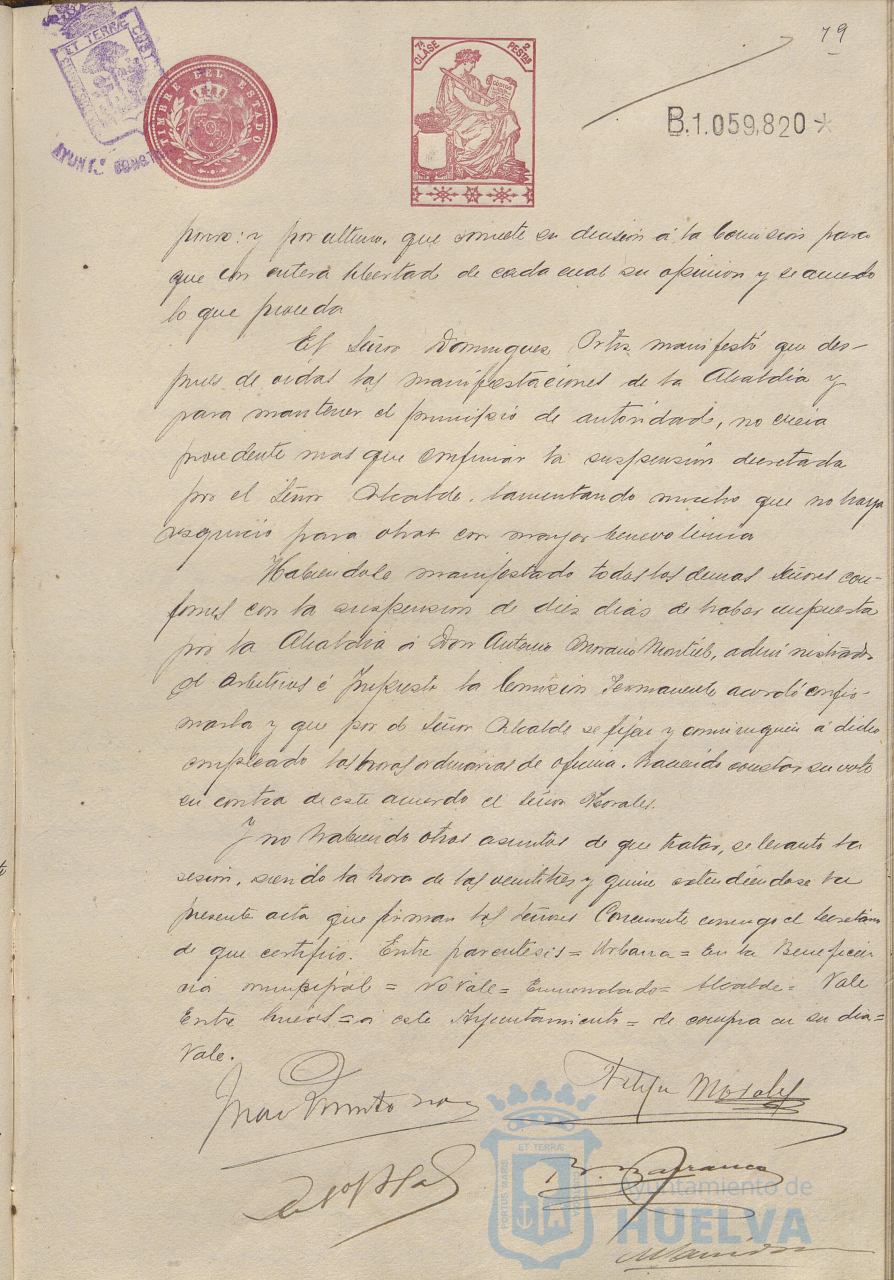 79
ET TERRÆ CUST
AYUNT.º CONSTI
TIMBRE DEL ESTADO
7ª CLASE 2 PESTAS
B.1.059,820 *
y por ultimo, que somete su decision á la Comision para
que con entera libertad de cada cual su opinion y se acuerde
lo que proceda
El Señor Dominguez Ortiz manifestó que des-
pues de oidas las manifestaciones de la Alcaldia y
para mantener el principio de autoridad, no creia
procedente mas que confirmar la suspensión decretada
por el Señor Alcalde, lamentando mucho que no haya
resquicio para obrar con mayor benevolencia
Habiendole manifestado todos los demas Señores con-
formes con la suspension de diez dias de haber impuesta
por la Alcaldia á Don Antonio Moreno Montiel, administrador
de Arbitrios é Impuesto la Comisión Permanente acordó confir-
marla y que por el Señor Alcalde se fijen y comuniquen á dicho
empleado las horas ordinarias de oficina, haciendo constar su voto
en contra de este acuerdo el Señor Morales.
Y no habiendo otros asuntos de que tratar, se levantó la
sesion, siendo la hora de las veintitres y quince extendiéndose la
presente acta que firman los Señores Concurrente conmigo el Secretario
de que certifico. Entre parentesis = Urbana = En la Beneficen
cia municipal = No Vale = Enmendado = Alcalde = Vale
Entre lineas = á este Ayuntamiento = de compra en su dia =
Vale.
Felipe Morales
Barranca
ET TERRÆ
PORTUS MARIS
Ayuntamiento de
HUELVA